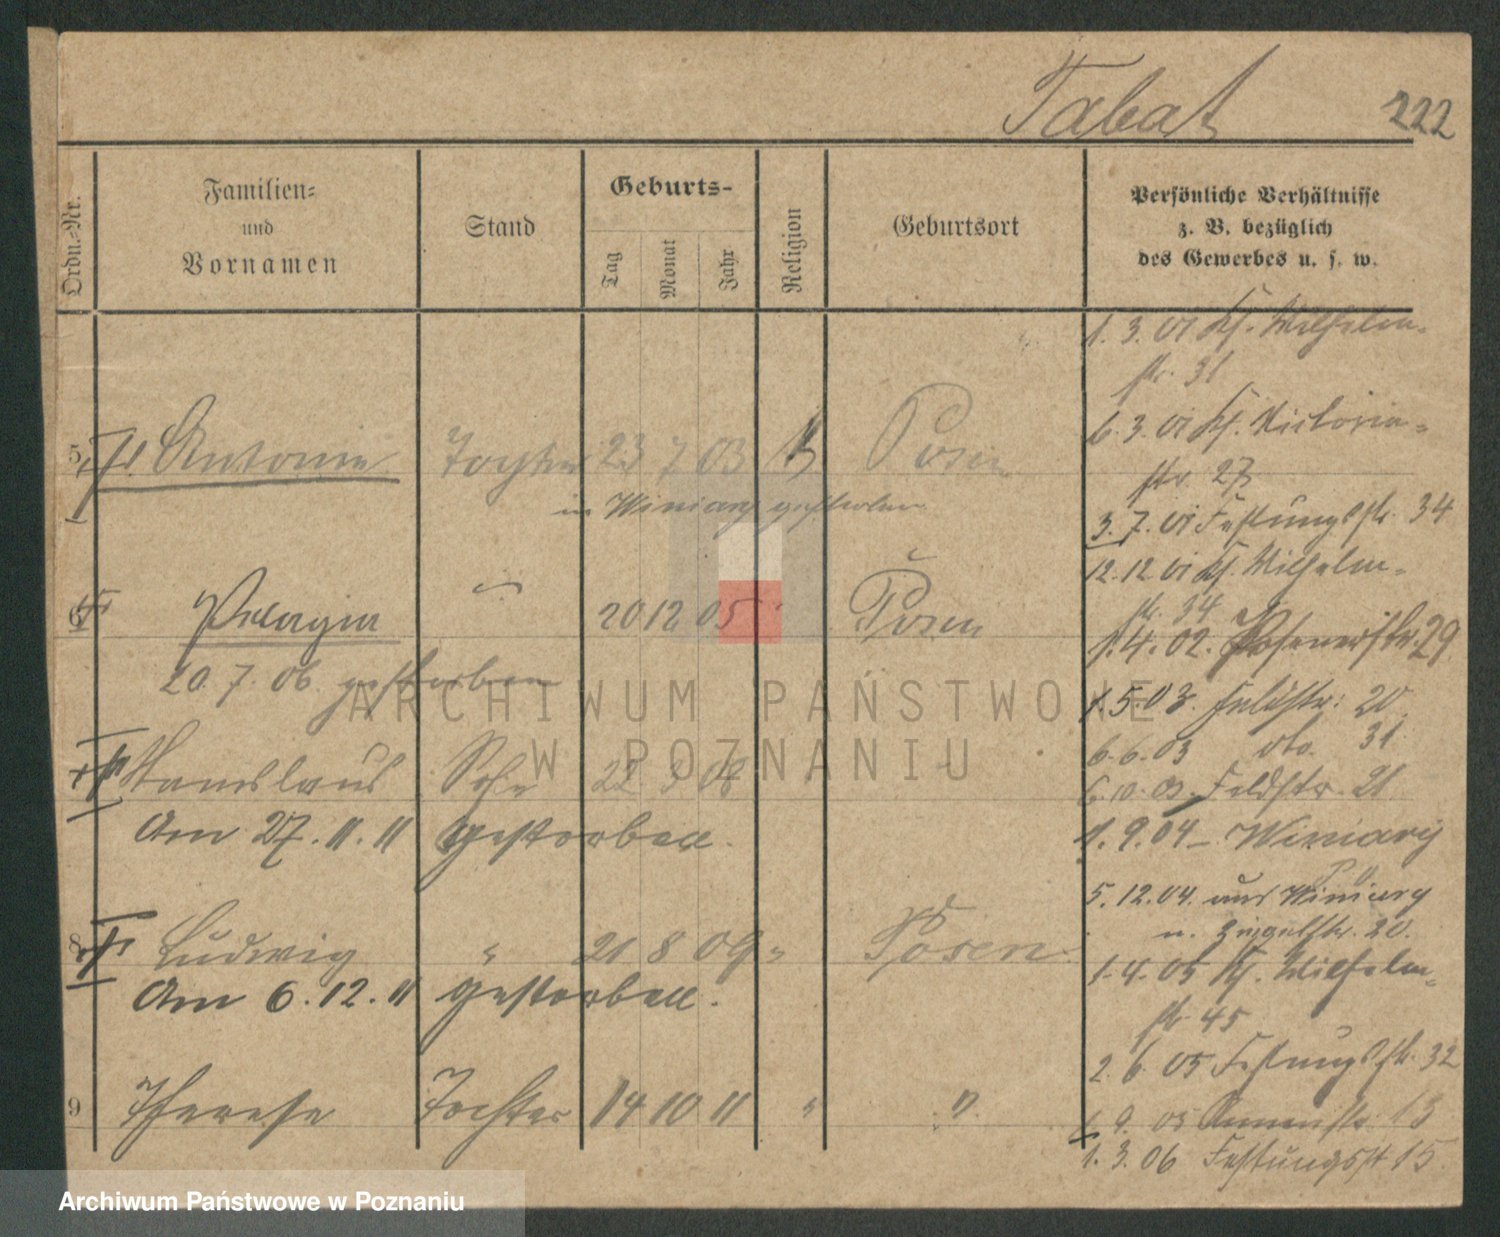 Tabat 222
Ordn.-Nr.
Familien-
und
Vornamen
Stand
Geburts-
Tag
Monat
Jahr
Religion
Geburtsort
Persönliche Verhältnisse
z. B. bezüglich
des Gewerbes u. s. w.
5 Antonie Tochter 23 7 03 Posen
in Winiary gestorben
6 Pelagia " 20 12 05 Posen
20. 7. 06. gestorben
Stanislaus Sohn 22
Am 27. 11. 11 gestorben.
8 Ludwig " 21 8 09 " Posen
Am 6. 12. 11 gestorben.
9 Therese Tochter 14 10 11 " "
1. 3. 01 Kf. Wilhelm-
str. 31
6. 3. 01 Kf. Victoria-
str. 27
3. 7. 01 Festungsstr. 34
12. 12 01 Kf. Wilhelm-
str. 34
1. 4. 02. Posenerstr. 29
1. 5. 03. Feldstr: 20
6. 6. 03 dto. 31
6. 10. 03. Feldstr. 21
1. 9. 04 - Winiary
5. 12. 04. aus Winiary
n. Ziegelstr. 20.
1. 4. 05 Kf. Wilhelm-
str 45
2. 6. 05 Festungsstr. 32
9. 05 Annenstr. 13
1. 3. 06 Festungsst 15.
ARCHIWUM PAŃSTWOWE
W POZNANIU
Archiwum Państwowe w Poznaniu